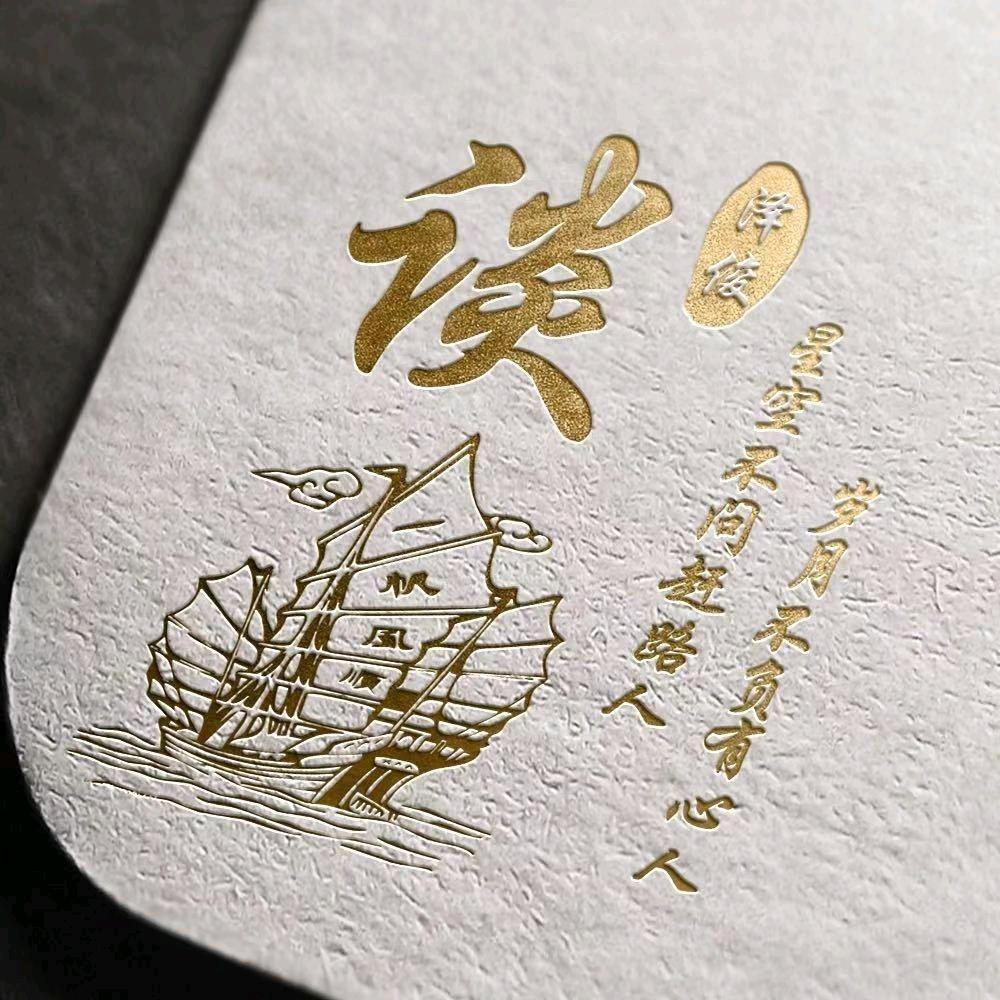 谈
泽俊
星空不问赶路人
岁月不负有心人
一帆風順